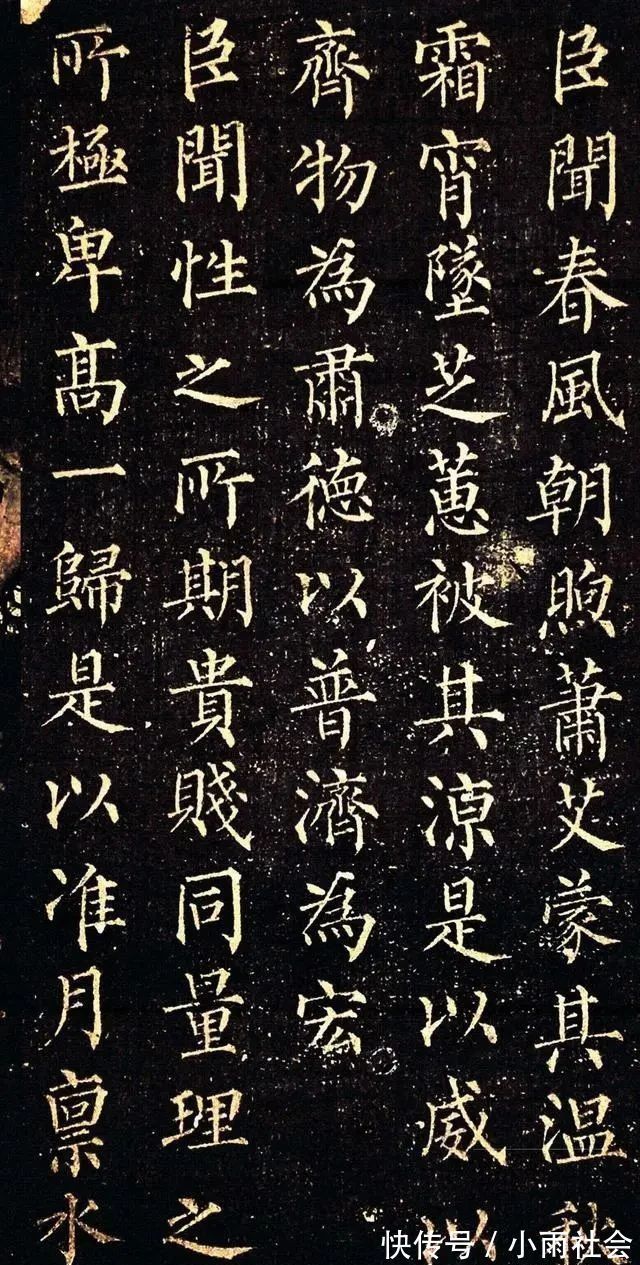 臣聞春風朝煦蕭艾蒙其温秋
霜宵墜芝蕙被其涼是以威以
齊物為肅德以普濟為宏
臣聞性之所期貴賤同量理之
所極卑高一歸是以准月禀水
快传号 / 小雨社会